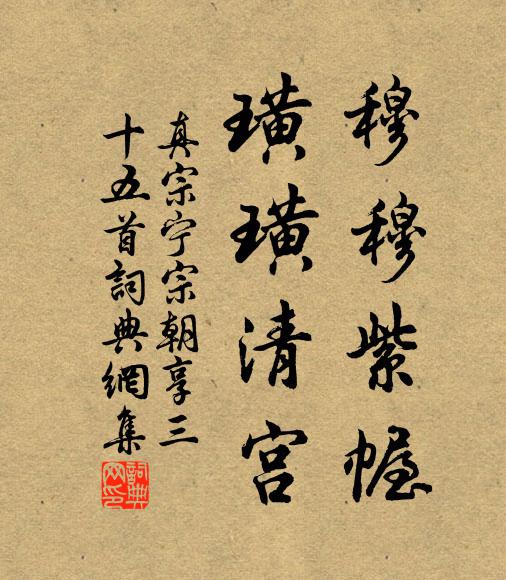 穆穆紫幄
璜璜清宫
真宗宁宗朝享三
十五首詞典網集
詞典網印